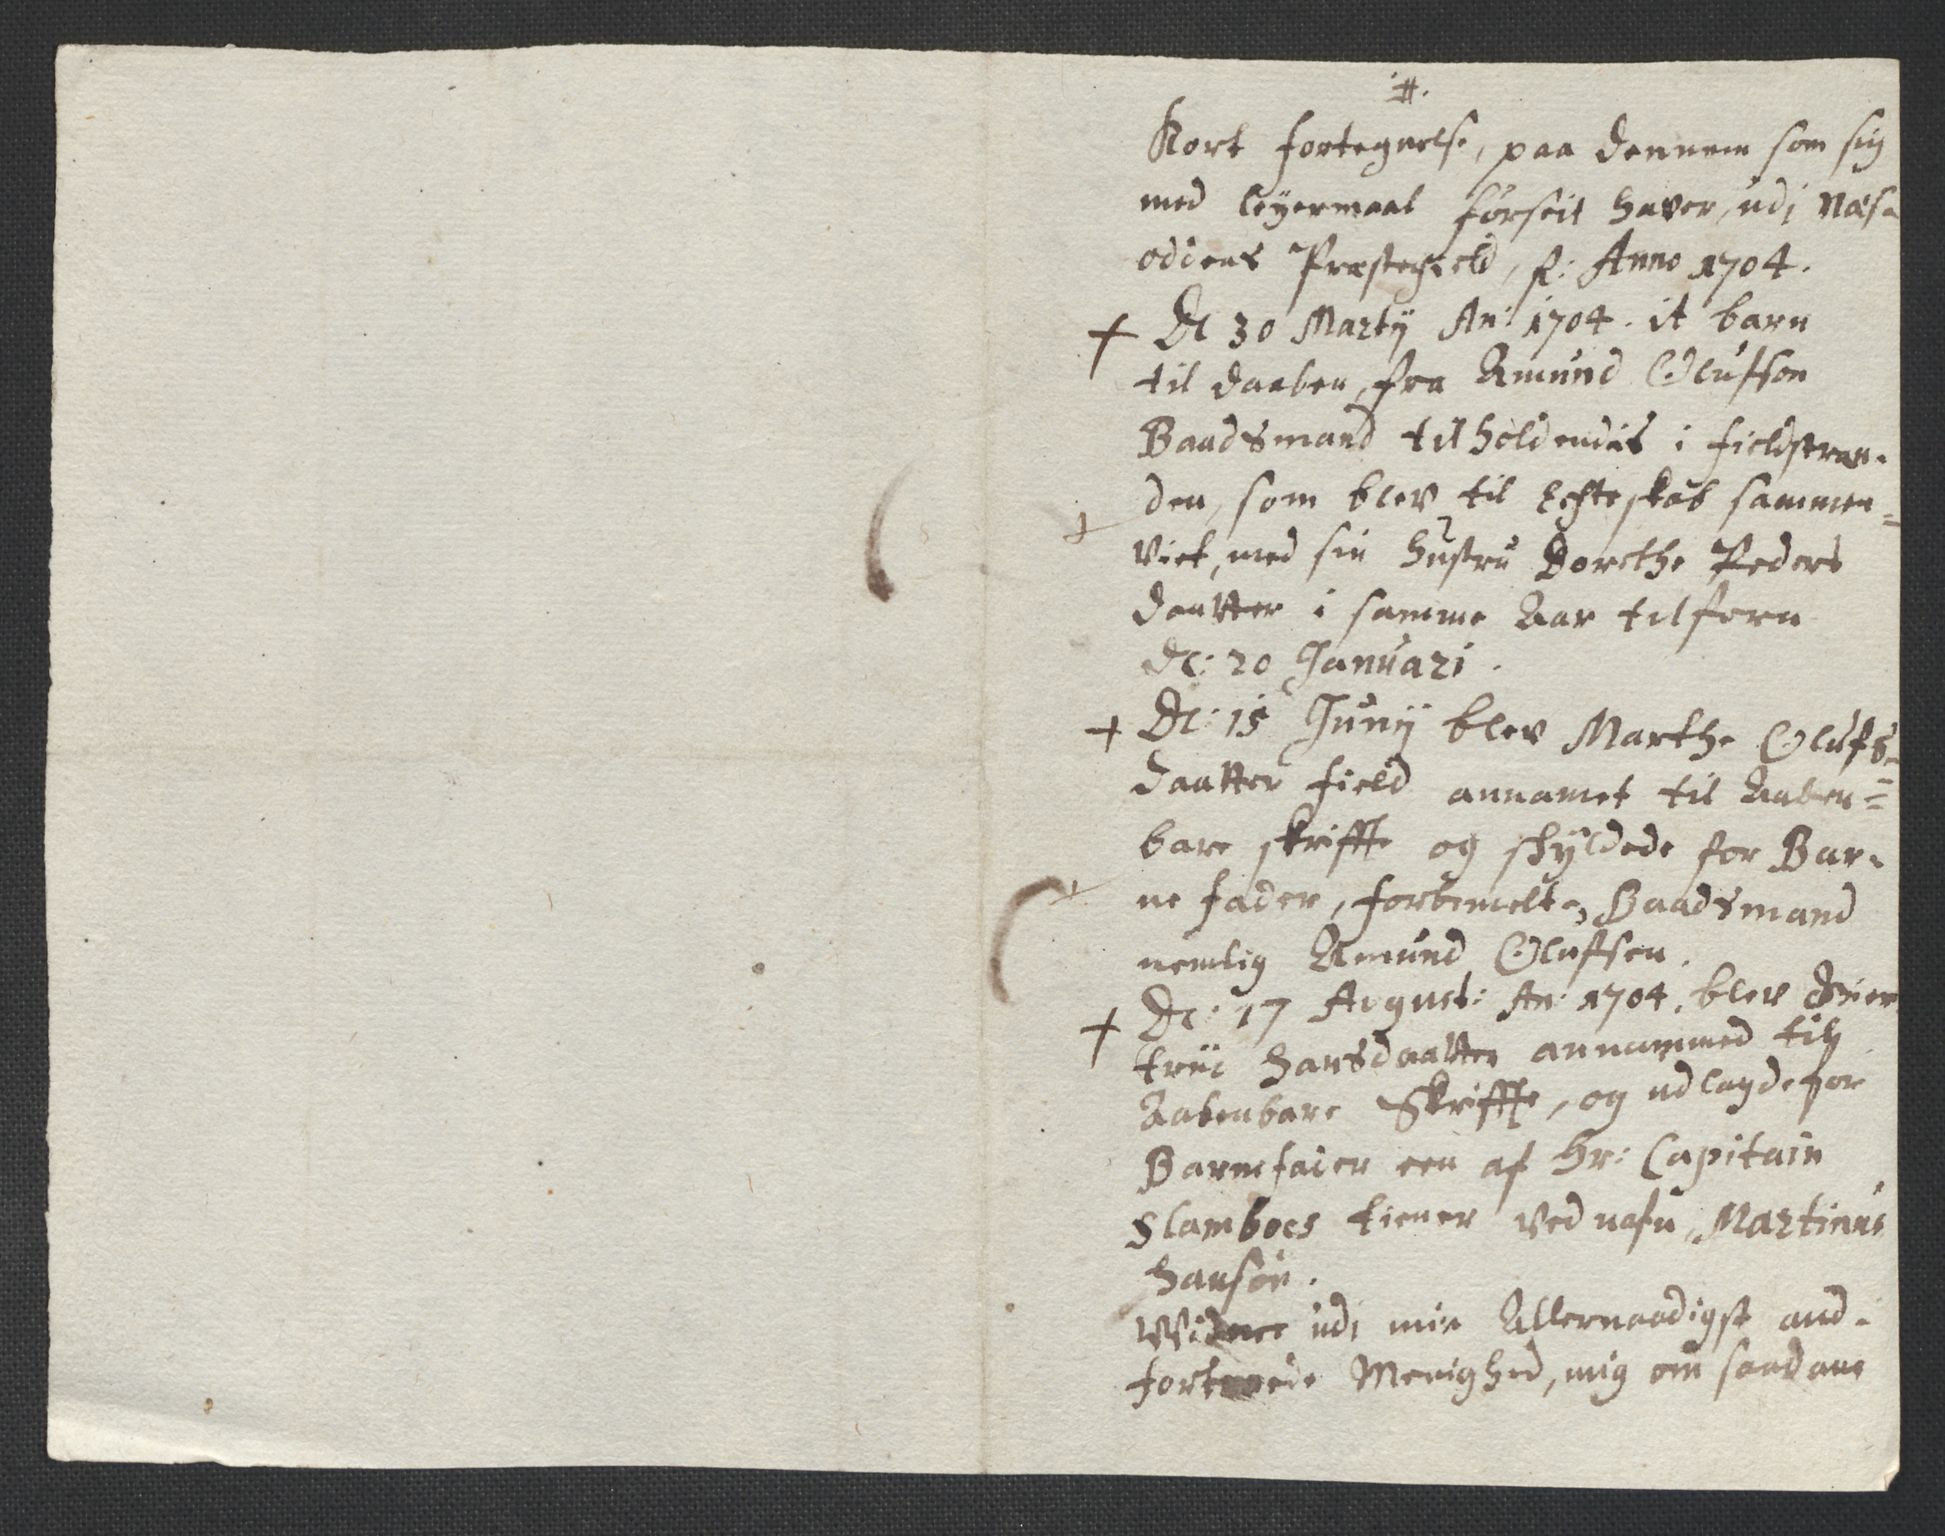 #.
Kort fortegnelse, paa dennem som sig
med leyermaal forseit haver, udi Næs=
oddens Præstegield, p: Anno 1704.
+ Dl 30 Martij An: 1704. it barn
til daaben, fra Amund Olufson
Baadsmand tilholdendis i fieldstran=
den, som blev til Echteskab sammen=
viet, med sin hustru Dorthe Peders
daatter i samme Aar tilforn
Dl: 20 Januari.
+ Dl: 15 Junij blev Marthe Olufs=
daatter field annamet til Aaben=
bare skriffte og skyldede for Bar=
ne fader, forbemelte, Baadsmand
nemlig Amund Olufsen.
+ Dl: 17 August: An: 1704. blev
truc hansdaatter annammed til
Aabenbare Skriffte, og udlagde for
Barnefader een af Hr: Capitain
Slamboes tiener ved nafn, Martinus
hansøn.
udi min Allernaadigst and=
fortroede Menighed, mig om saadane